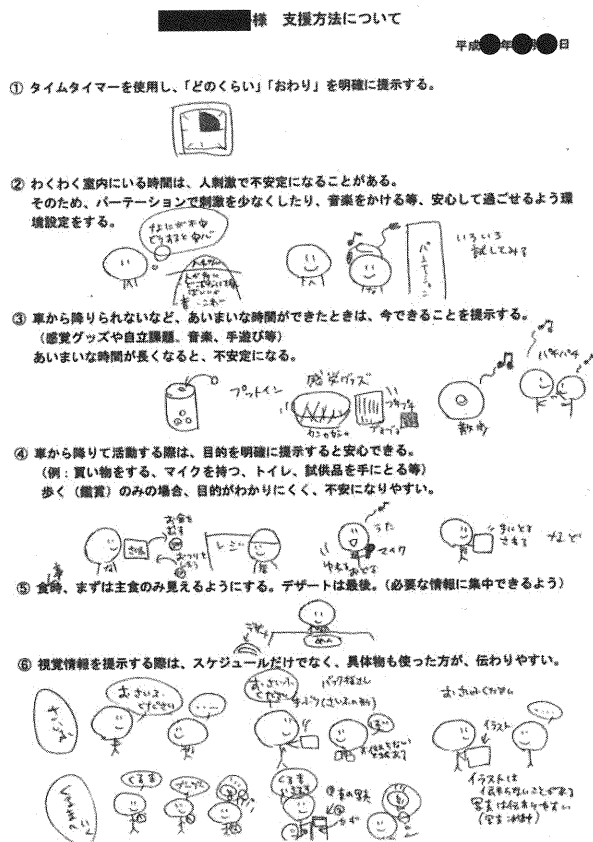 様　支援方法について
平成 年 月 日
① タイムタイマーを使用し、「どのくらい」「おわり」を明確に提示する。
② わくわく室内にいる時間は、人刺激で不安定になることがある。
そのため、パーテーションで刺激を少なくしたり、音楽をかける等、安心して過ごせるよう環
境設定をする。
なにが不安
どうすると安心
パーテーション
いろいろ
試してみる
③ 車から降りられないなど、あいまいな時間ができたときは、今できることを提示する。
（感覚グッズや自立課題、音楽、手遊び等）
あいまいな時間が長くなると、不安定になる。
プットイン
感覚グッズ
パチパチ
④ 車から降りて活動する際は、目的を明確に提示すると安心できる。
（例：買い物をする、マイクを持つ、トイレ、試供品を手にとる等）
歩く（鑑賞）のみの場合、目的がわかりにくく、不安になりやすい。
お金を
レジ
うた
マイク
など
⑤ 食時、まずは主食のみ見えるようにする。デザートは最後。（必要な情報に集中できるよう）
⑥ 視覚情報を提示する際は、スケジュールだけでなく、具体物も使った方が、伝わりやすい。
おさいふ
ください
おさいふ
ください
おさいふください
イラスト
くるま
イラストは
伝わらないことがある
写真は伝わりやすい